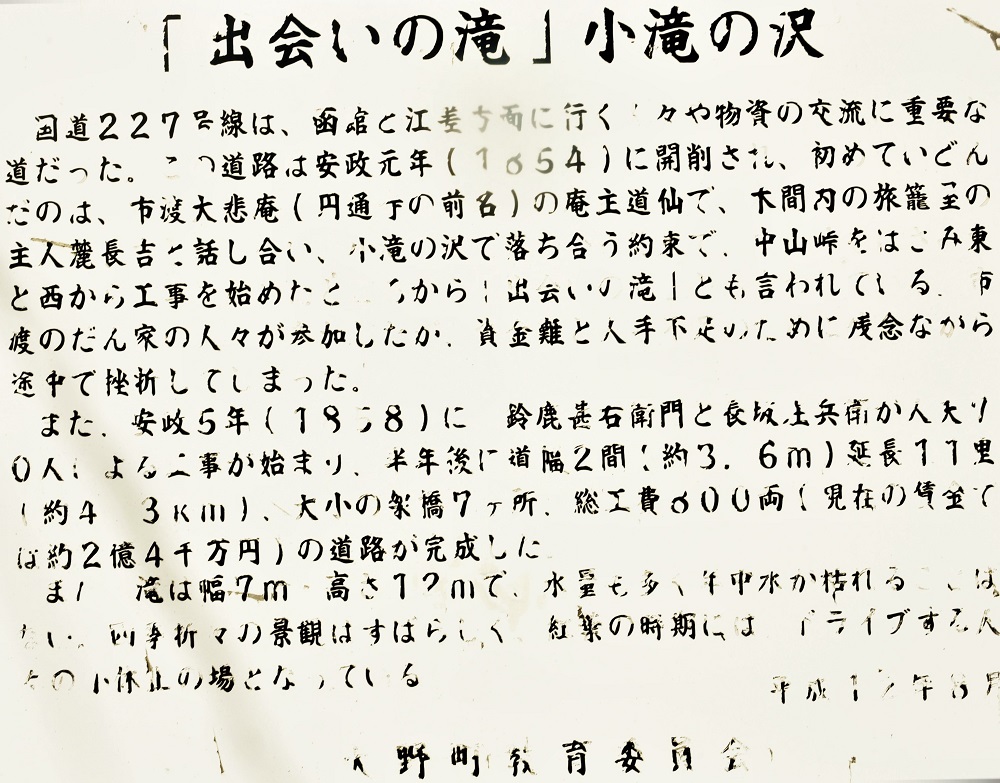 「出会いの滝」小滝の沢
国道227号線は、函館と江差方面に行く 々や物資の交流に重要な
道だった。この道路は安政元年(1854)に開削され、初めていどん
だのは、市渡大悲庵(円通寺の前名)の庵主道仙で、本間内の旅籠屋の
主人麓長吉と話し合い、小滝の沢で落ち合う約束で、中山峠をはさみ東
と西から工事を始めたと から「出会いの滝」とも言われている。市
渡のだん家の人々が参加したが、資金難と人手不足のために残念ながら
途中で挫折してしまった。
また、安政5年(1858)に 鈴鹿甚右衛門と長坂庄兵衛が人夫
0人による工事が始まり、半年後に道幅2間(約3.6m)延長11里
(約4 3km)、大小の架橋7ヶ所、総工費800両(現在の賃金で
は約2億4千万円)の道路が完成した
また 滝は幅7m 高さ12mで、水量も多く年中水が枯れることは
ない。四季折々の景観はすばらしく 紅葉の時期には ドライブする人
の小休止の場となっている
平成12年8月
野町教育委員会